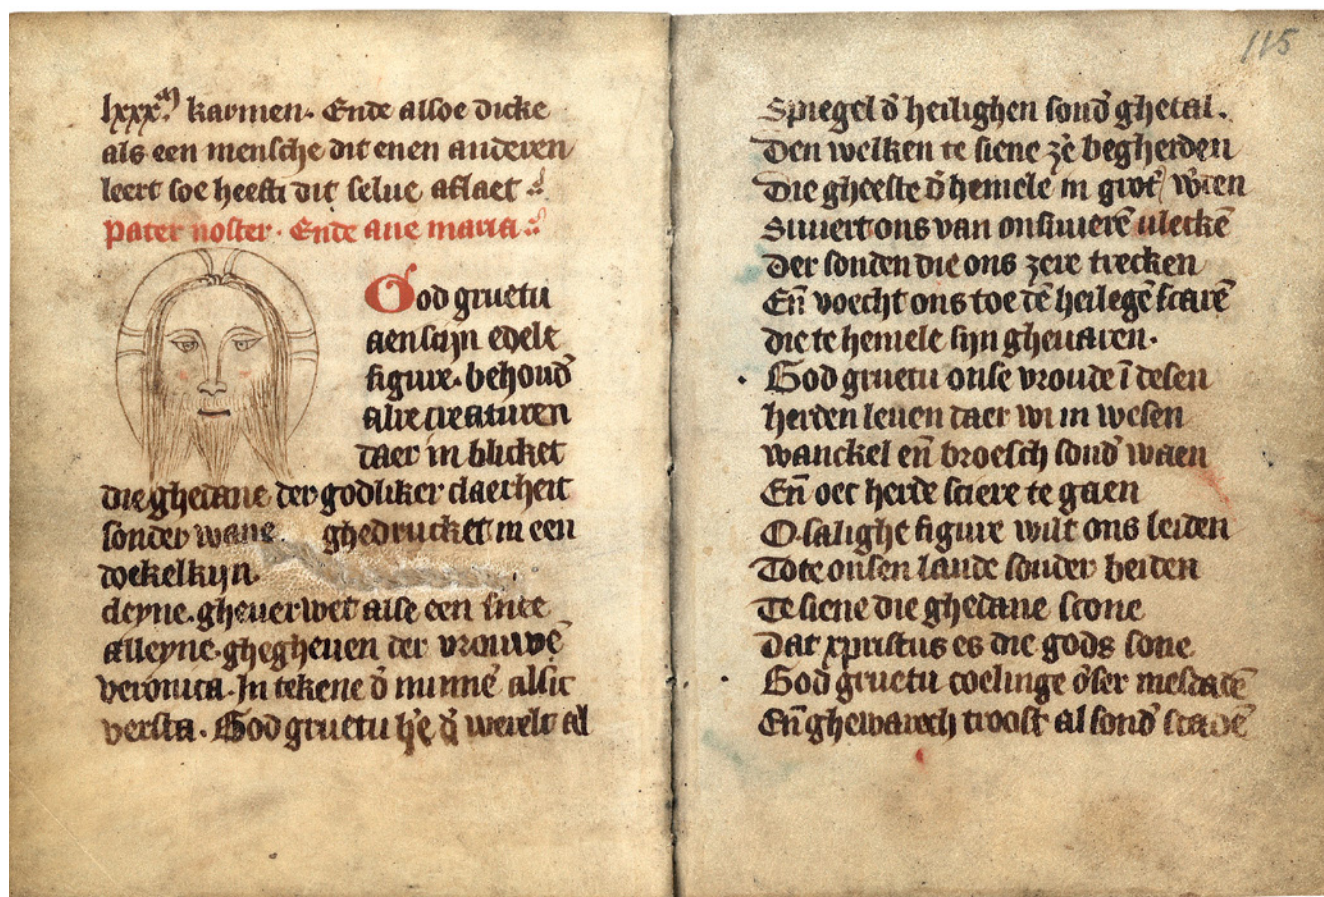 lxxx.m karinen. Ende alsoe dicke
als een mensche dit enen anderen
leert soe heefti dit selue aflaet
pater noster. Ende aue maria
God gruetu
aenscijn edele
figure. behoud̕
alre creaturen
daer in blicket
die ghedane der godliker claerheit
sonder wane. ghedrucket in een
doekelkijn
cleyne. gheuerwet alse een snee
alleyne. ghegheuen der vrouwē
veronica. In tekene d̕ minnē alsic
versta. God gruetu d̕ werelt al
115
Spiegel d̕ heilighen sond̕ ghetal.
Den welken te siene zē begherden
Die gheeste d̕ hemele in
Suuert ons van onsuuerē vleckē
Der sonden die ons zere trecken
Eñ voecht ons toe dē heilegē scarē
die te hemele sijn gheuaren.
God gruetu onse vroude ī desen
herden leuen daer wi in wesen
wanckel eñ broesch sond̕ waen
Eñ oec herde sciere te gaen
O salighe figure wilt ons leiden
Tote onsen lande sonder beiden
Te siene die ghedane scone
Dat xpristus es die gods sone
God gruetu coelinge ōser mesdadē
Eñ ghewarech troost al sond̕ scadē